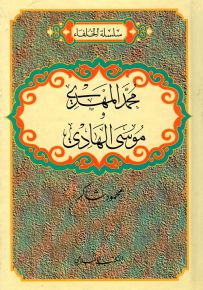 سلسلة الخلفاء
محمد المهدي
و
موسى الهادي
محمود شاكر